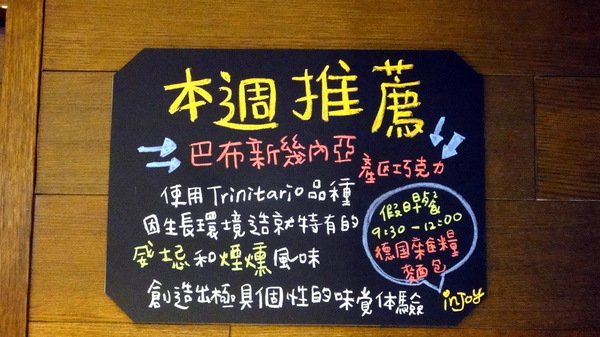 本週推薦
巴布新幾內亞
產區巧克力
使用Trinitario品種
因生長環境造就特有的
威忌和煙燻風味
創造出極具個性的味覚体驗
假日早餐
9:30-12:00
德国雜糧
麵包
inJoy